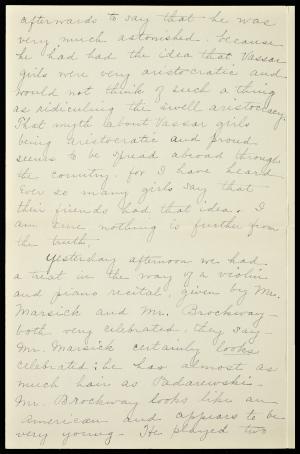 afterwards to say that he was
very much astonished, because
he had had the idea that Vassar
girls were very aristocratic and
would not think of such a thing
as ridiculing the swell aristocracy.
That myth about Vassar girls
being aristocratic and proud
seems to be spread abroad through
the country, for I have heard
ever so many girls say that
their friends had that idea. I
am sure nothing is further from
the truth.
Yesterday afternoon we had
a treat in the way of a violin
and piano recital, given by Mr.
Marsick and Mr. Brockway -
both very celebrated, they say -
Mr. Marsick certainly looks
celebrated; he has almost as
much hair as Padarewski -
Mr. Brockway looks like an
American and appears to be
very young - He played two